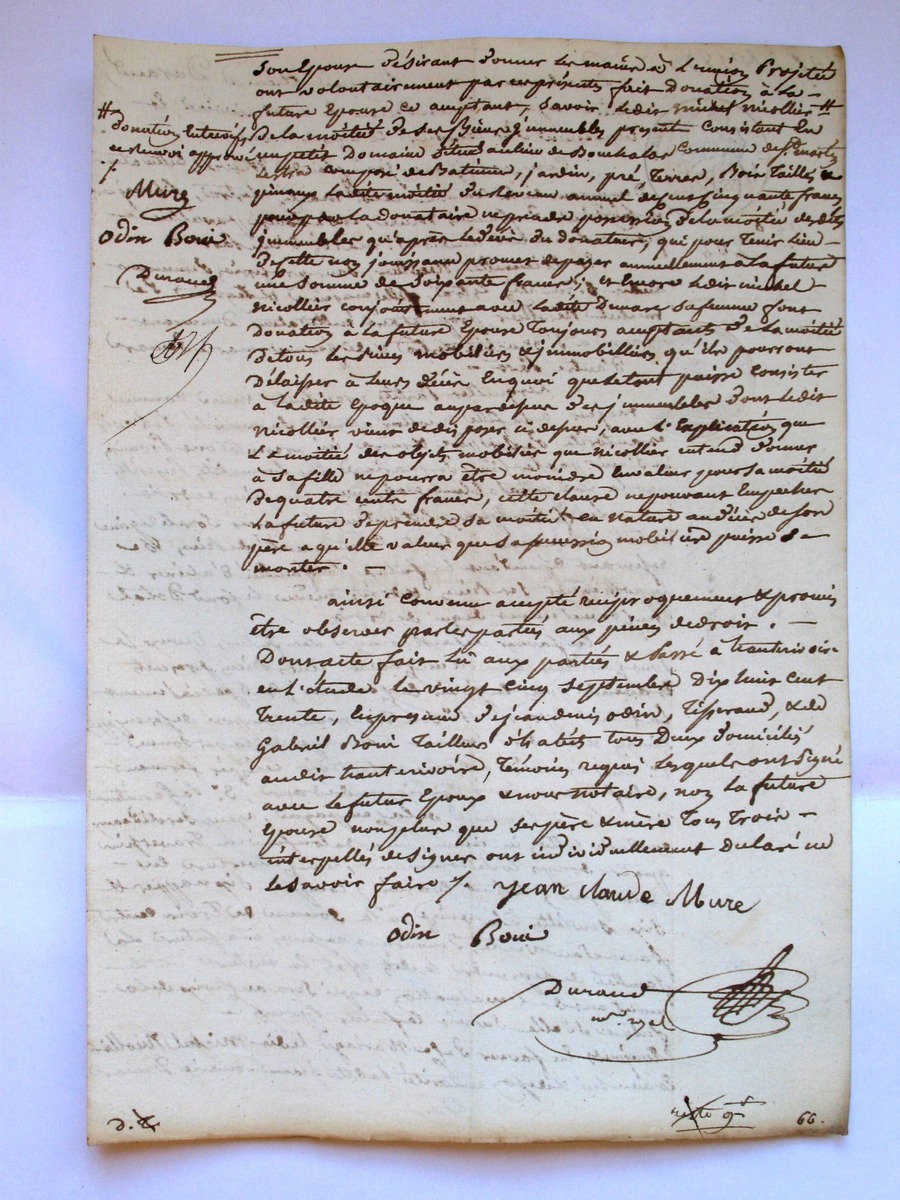 son Epouse désirant donner de marier à L'union Projetée
ont volontairement par ces présentes fait donation à la
future Epouse ce acceptant, Savoir Ledit michel nicollier #
De la moitié de ses Biens immeubles present Consistent En
un petit Domaine situé au lieu de Commune de St martin
Lestra composé de Batimen, jardin, pré, Terres, Bois Taillis &
pinaux Ladite moitié d'un Revenu annuel de Cinquante francs
La donataire ne prendra possession de la moitié desdits
jmmeubles qu'après Le décès du donateur, qui pour Tenir Lieu
De cette non jouissance promet de payer annuellement à La future
une somme de soixante francs; et Encore Ledit michel
Nicollier conjointement avec Ladite sa femme font
Donation à La future Epouse Toujours acceptante De La moitié
De tous Les Biens mobiliers & jmmobilliers qu'ils pourront
Délaisser à Leurs décès En quoi que Le tout puisse Consister
à Ladite Epoque au par dessus des jmmeubles dont Ledit
Nicollier vient de disposer ci dessus, avec L'Explication que
La moitié des objets mobiliers que nicollier entend donner
à sa fille ne pourra être moindre En valeur pour sa moitié
De quatre cents francs, cette clause ne pouvant Empecher
La future de prendre sa moitié en nature au décès de son
père a qu'elle valeur que sa succession mobilière puisse Se
monter. —
ainsi Convenu accepté réciproquement & promis
être observer par les parties aux peines de droit. —
Dont acte fait Lû aux parties & Passé à hauterivoire
en L'étude Le vingt cinq septembre Dix huit cent
Trente, En présence de jean denis odin, Tisserand, & de
Gabriel Boui Tailleur d'habits Tous Deux Domiciliés
audit hauterivoire, Témoins requis Lesquels ont Signé
avec Le futur Epoux & nous notaire, non La future
Epouse non plus que ses père & mère Tous Trois
interpellés de signer ont individuellement declaré ne
Le savoir faire /. jean claude Mure
odin Boui
Durand
nre royal
# donation Entrevifs
ce renvoi approuvé
/.
Mure
odin Boui
Durand
66.